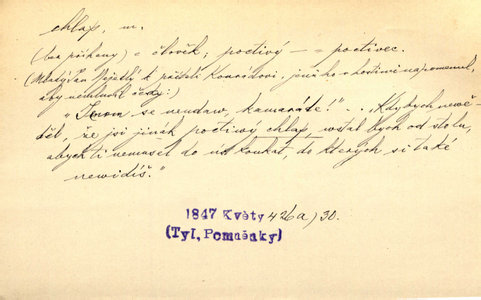 chlap, m.
(bez příhany) = člověk; poctivý — = poctivec.
(Mladý pan Nejedlý k příteli Konrádovi, jenž ho v hostinci napomenul,
aby nemluvil česky:)
"Jenom se nendaw, kamaráde! ... Kdybych newě-
děl, že jsi jinak poctiwý chlap, wstal bych od stolu,
abych ti nemusel do úst koukat, do kterých si také
newidíš."
1847 Květy 426a) 30.
(Tyl, Pomněnky)